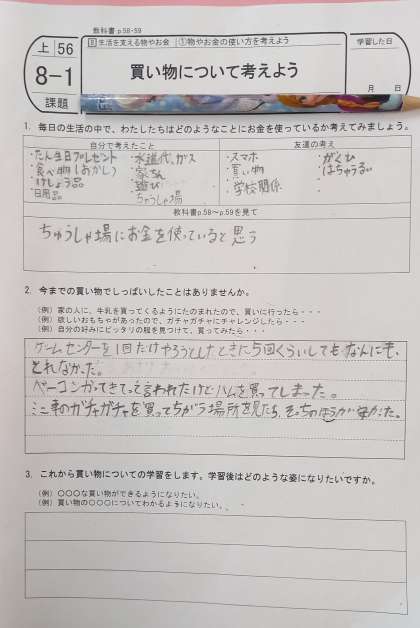 教科書 p.58-59
上 56
8-1
課題
B生活を支える物やお金 ①物やお金の使い方を考えよう
買い物について考えよう
学習した日
月 日
1. 毎日の生活の中で、わたしたちはどのようなことにお金を使っているか考えてみましょう。
自分で考えたこと 友達の考え
・たん生日プレゼント ・水道代、ガス ・スマホ ・がくひ
・食べ物(おかし) ・家ちん ・買い物 ・はちゅうるい
・けしょう品 ・遊び ・学校関係
・日用品 ・ちゅうしゃ場
教科書p.58～p.59を見て
ちゅうしゃ場にお金を使っていると思う
2. 今までの買い物でしっぱいしたことはありませんか。
(例) 家の人に、牛乳を買ってくるようにたのまれたので、買いに行ったら・・・
(例) 欲しいおもちゃがあったので、ガチャガチャにチャレンジしたら・・・
(例) 自分の好みにピッタリの服を見つけて、買ってみたら・・・
ゲームセンターを1回だけやろうとしたときに5回くらいしてもなんにも、
とれなかった。
ベーコンかってきてって言われたけどハムを買ってしまった。
ミニ車のガチャガチャを買ってちがう場所を見たら、そっちのほうが安かった。
3. これから買い物についての学習をします。学習後はどのような姿になりたいですか。
(例) 〇〇〇な買い物ができるようになりたい。
(例) 買い物の〇〇〇についてわかるようになりたい。